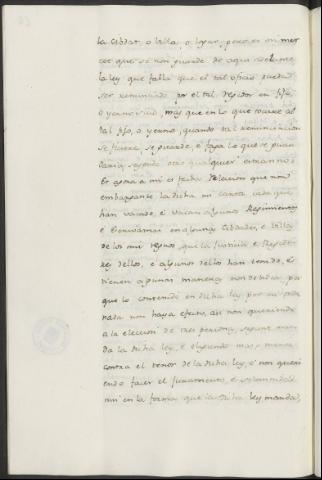 la Cibdat, o Villa, o logar, pero es mi mer
cet que se non guarde de aqui adelante
la ley que fabla que el tal oficio pueda
ser renunciado por el tal Regidor en fijo
o yerno suio, mas que en lo que tocare al
tal fijo, o yerno, quando tal renunciacion
se ficiere, se guarde, e faga lo que se guar
daria, seyendo otro qualquier estranno
E agora a mi es fecha relacion que non
embargante la dicha mi carta cada que
han vacado, e vacan algunos Regimientos
e Escrivanias en algunas Cibdades, e Villas
de los mis regnos, que la Justicia e Regido
res dellos, e algunos dellos han tenido, e
tienen algunas maneras non devidas por
que lo contenido en dicha ley por mi orde
nada non haya efecto, asi non queriendo
a la eleccion de tres personas, segunt man
da la dicha ley, e eligiendo mas, e menos
contra el tenor de la dicha ley, e non queri
endo facer el Juramento, e solemnidad
nin en la forma que la dicha ley manda,